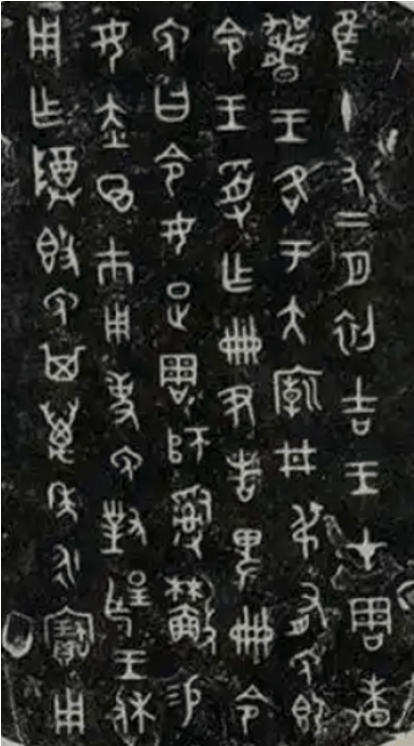 隹十又二月初吉王才周昧
爽王各于大廟井叔有免即
令王受乍冊尹者卑冊令
免曰令女疋周師𤔲易
女赤⊙巿用事免對揚王休
用乍尊簋免其萬年永寶用